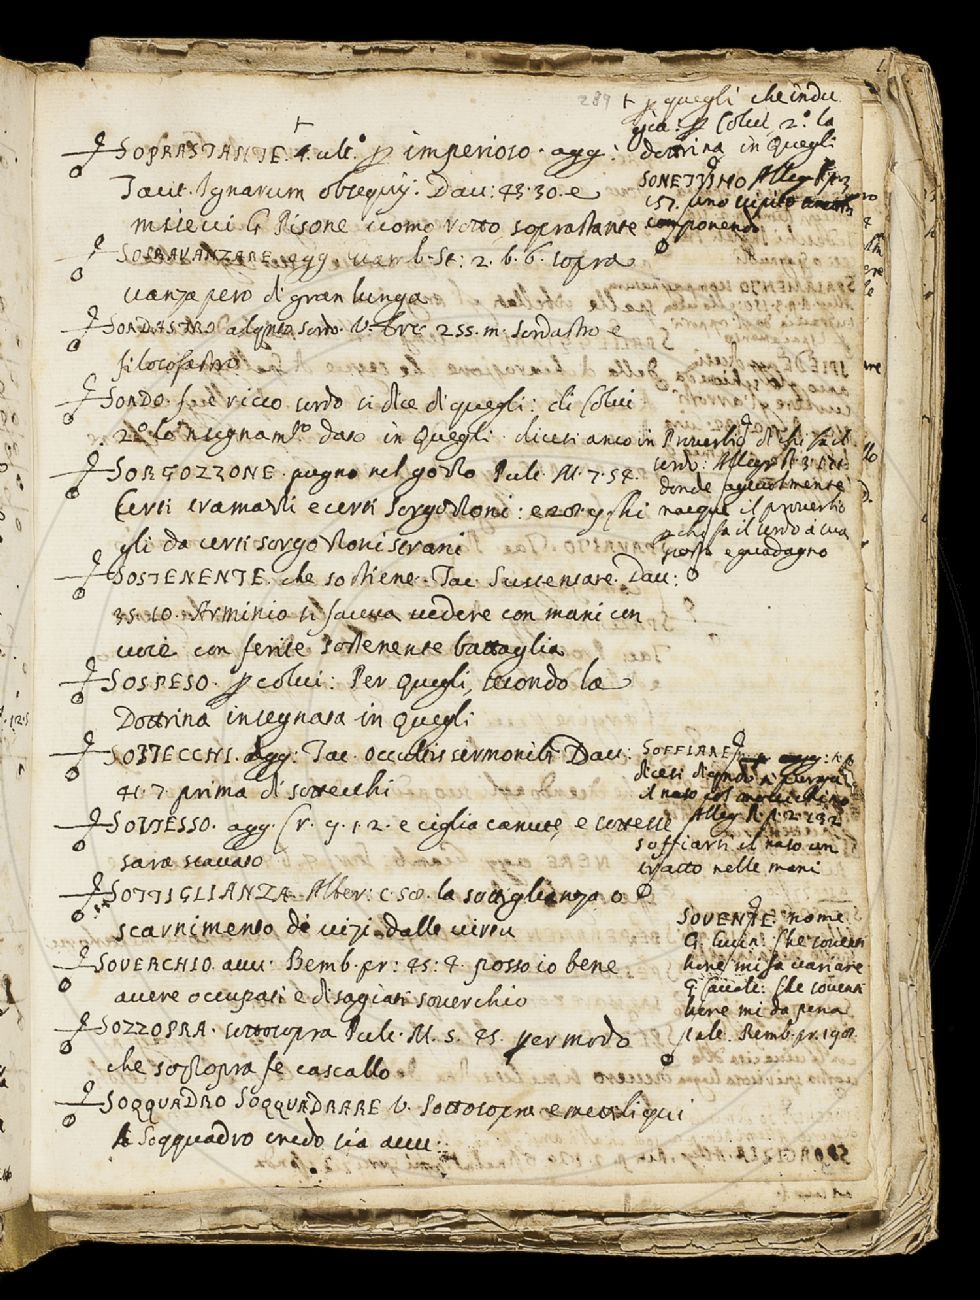 289
+ p quegli che indu
gia: p Colui, 2.º la
dottrina in Quegli
SOPRASTANTE. §. ult.º p imperioso. agg:
Tacit. Ignarum obsequij: Dav: 43. 30. e
messevi G Pisone uomo rotto, soprastante
SONETTINO Alleg
157. uno
componendo
SOPRAVANZARE. agg. Varch. St: 2. 6. 6. sopra
vanza però di gran lunga
SORDASTRO alqnto sordo. V. 255. m. sordastro e
filosofastro
SORDO. fare ricco sordo si dice di quegli: di Colui
2.º lo nsegnam.to dato in Quegli. dicesi anco in Proverbio di chi fa il
sordo: Alleg
donde agevolmente
nacque il proverbio
p chi fa il sordo a sua
posta e guadagno
SORGOZZONE. pugno nel gozzo Pulc. M. 7. 58.
Certi tramazzi e certi sorgozzoni: e
gli dà certi sorgozzoni strani
SOSTENENTE. che sostiene. Tac. Sustentare. Dav:
35. 10. Arminio si faceva vedere con mani con
voce con ferite sostenente battaglia
SOSPESO. p colui: Per Quegli, secondo la
Dottrina insegnata in Quegli
SOTTECCHI. agg: Tac. occultis sermonib: Dav:
41. 7 prima di sottecchi
SOFFIARE
dicesi di qndo
il naso col moccichino
Alleg R. p. 2. 132
soffiarsi il naso un
tratto nelle mani
SOVESSO. agg. Cr. 9. 1. 2. e ciglia canute, e
sarà scavato
SOTTIGLIANZA Alber: C. 50. la sottiglianza o
scarnimento di vizi dalle virtù
SOVENTE. nome
G. Guin: Che soventi
hore mi fa variare
che soventi
hore mi dà pena
tale. Bemb. pr. 190.
SOVERCHIO. avv. Bemb. pr: 45: 8. posso io bene
avere occupati e disagiati soverchio
SOZZOPRA. sottosopra Pulc. M. 5. 45. per modo
che sozzopra fe cascallo
SOQQUADRO SOQQUADRARE V. Sottosopra e mettili qui
A Soqquadro credo sia avv: